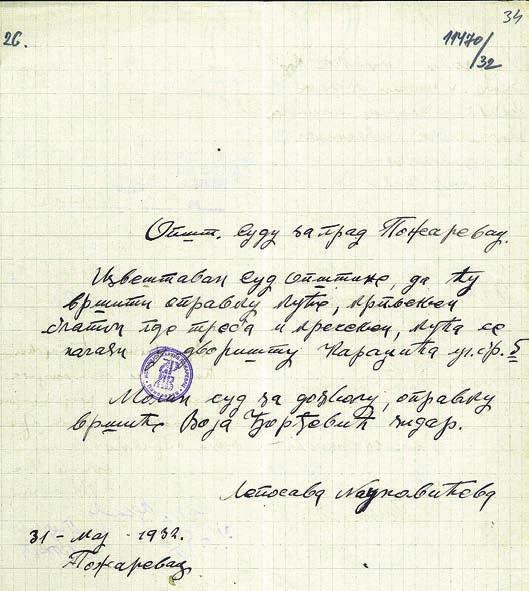 34
26.
11470/32
Општ. суду за град Пожаревац.
Извештавам суд општине, да ћу
вршити оправку куће, крпљењем
блатом где треба и кречењем, кућа се
налази у дворишту Караџића ул. бр. 5
Молим суд за дозволу, оправку
вршиће Воја Ђорђевић зидар.
Лепосава
31 – мај 1932.
Пожаревац